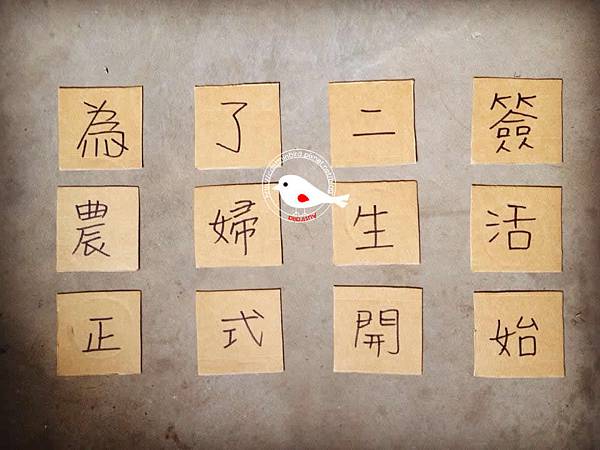 為了二簽
農婦生活
正式開始
AUSTRALIA